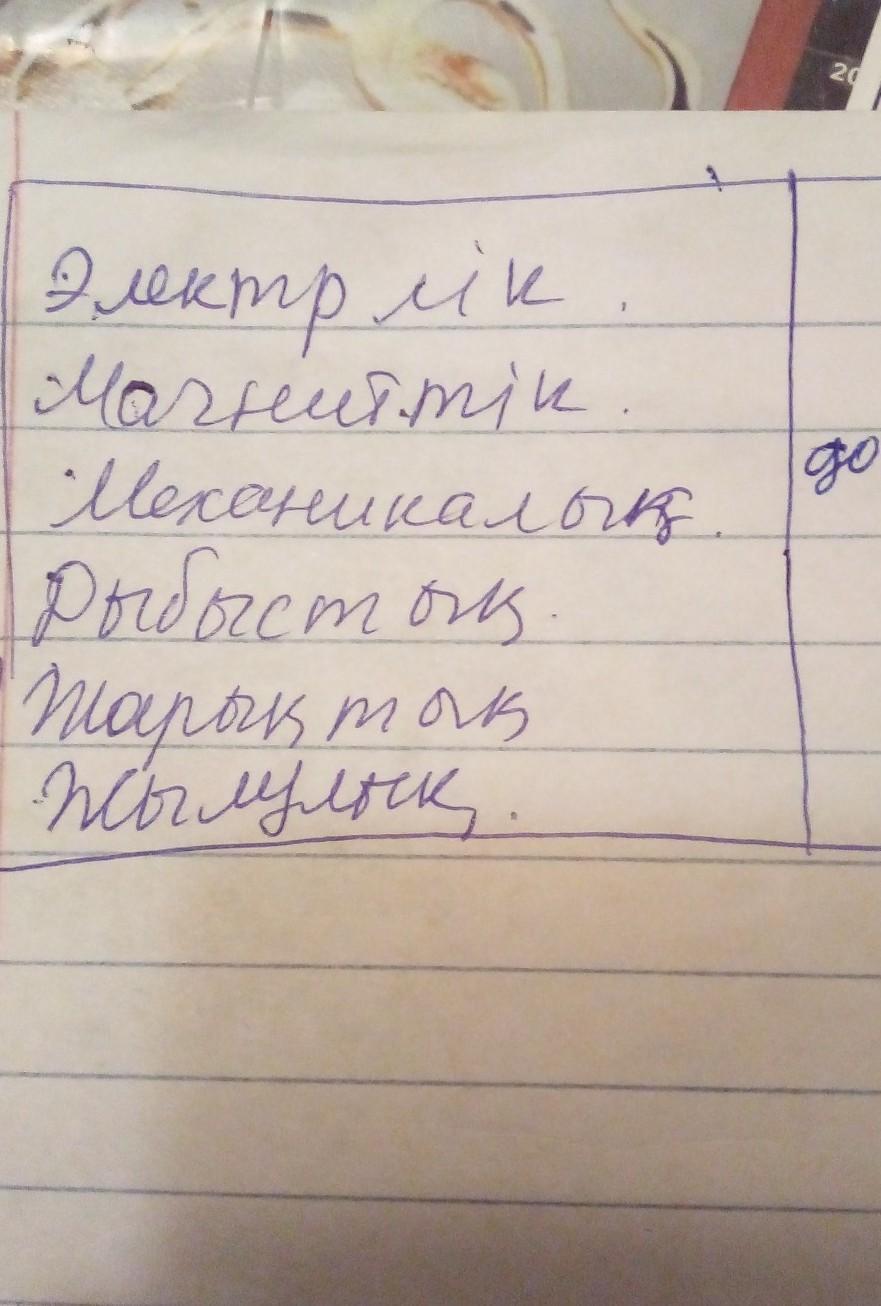 20
Электрлік.
Магниттік.
Механикалық.
до
Дыбыстық.
Жарықтық
Жылулық.